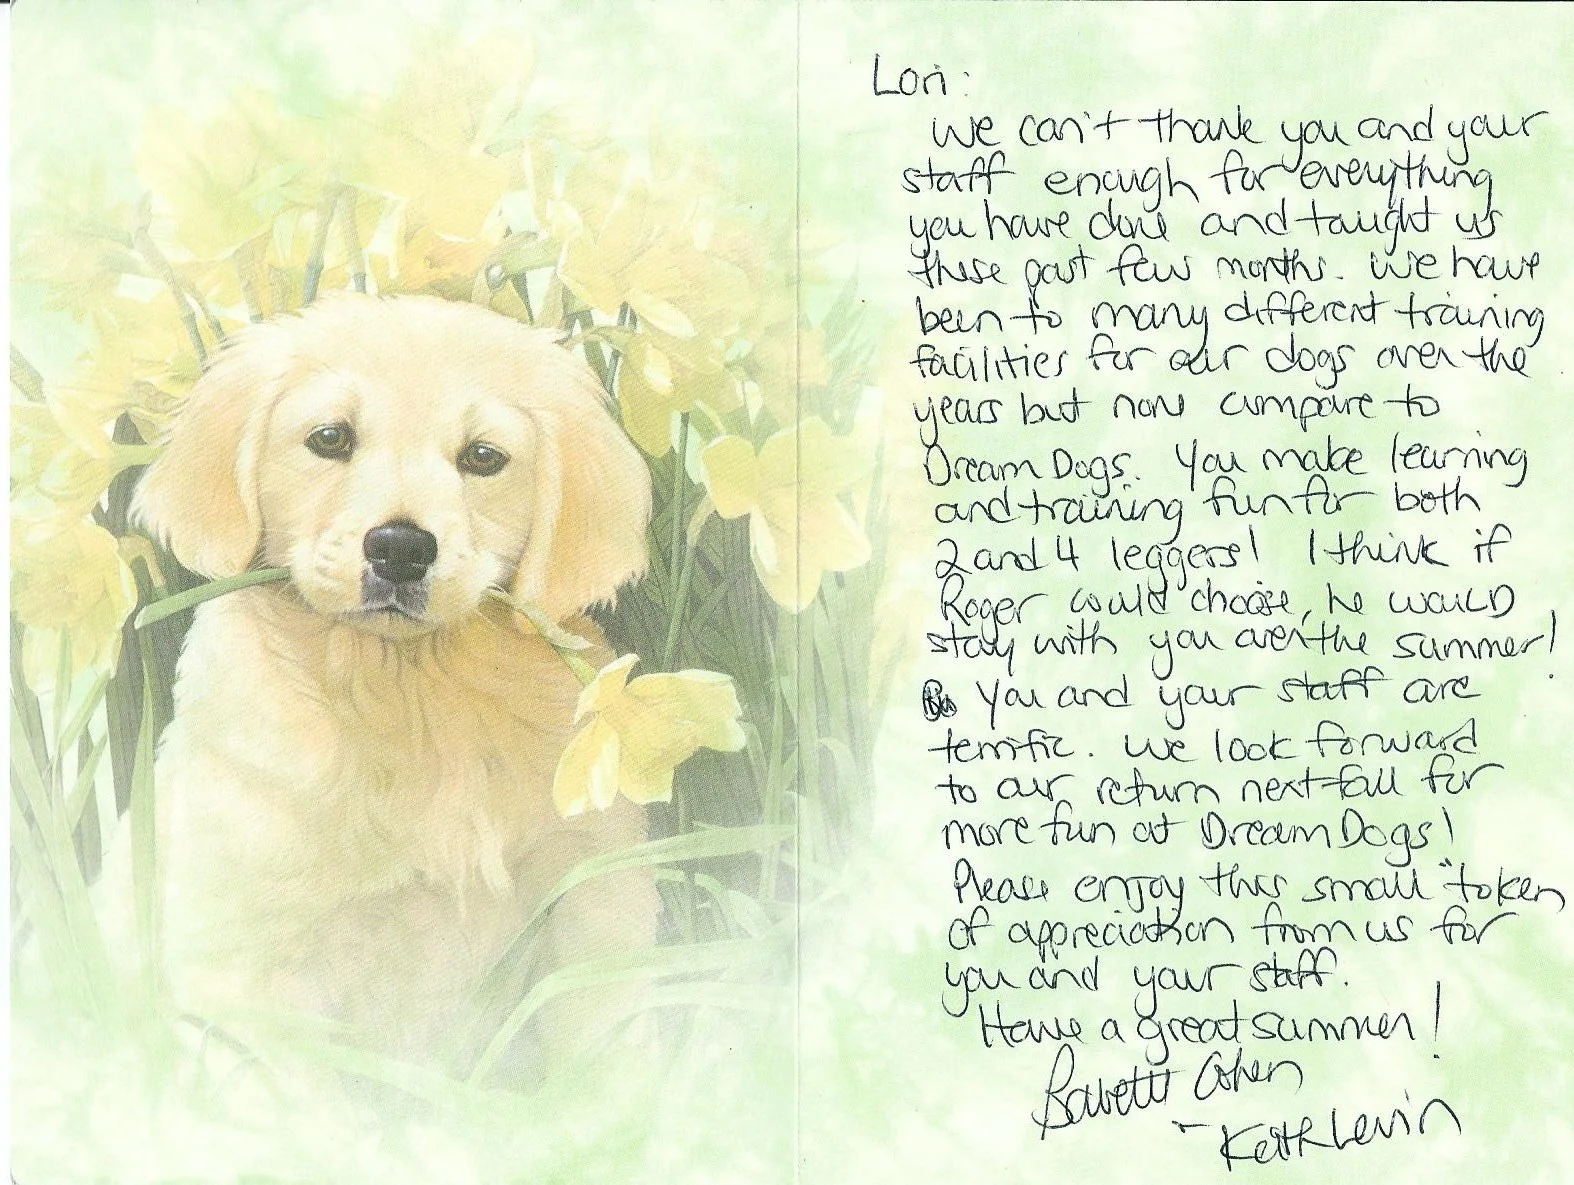 Lori:
We can't thank you and your
staff enough for everything
you have done and taught us
these past few months. We have
been to many different training
facilities for our dogs over the
years but none compare to
Dream Dogs. You make learning
and training fun for both
2 and 4 leggers! I think if
Roger could choose, he would
stay with you over the summer!
You and your staff are
terrific. We look forward
to our return next fall for
more fun at Dream Dogs!
Please enjoy this small "token
of appreciation from us for
you and your staff.
Have a great summer!
Babette Cohen
Keith Levin